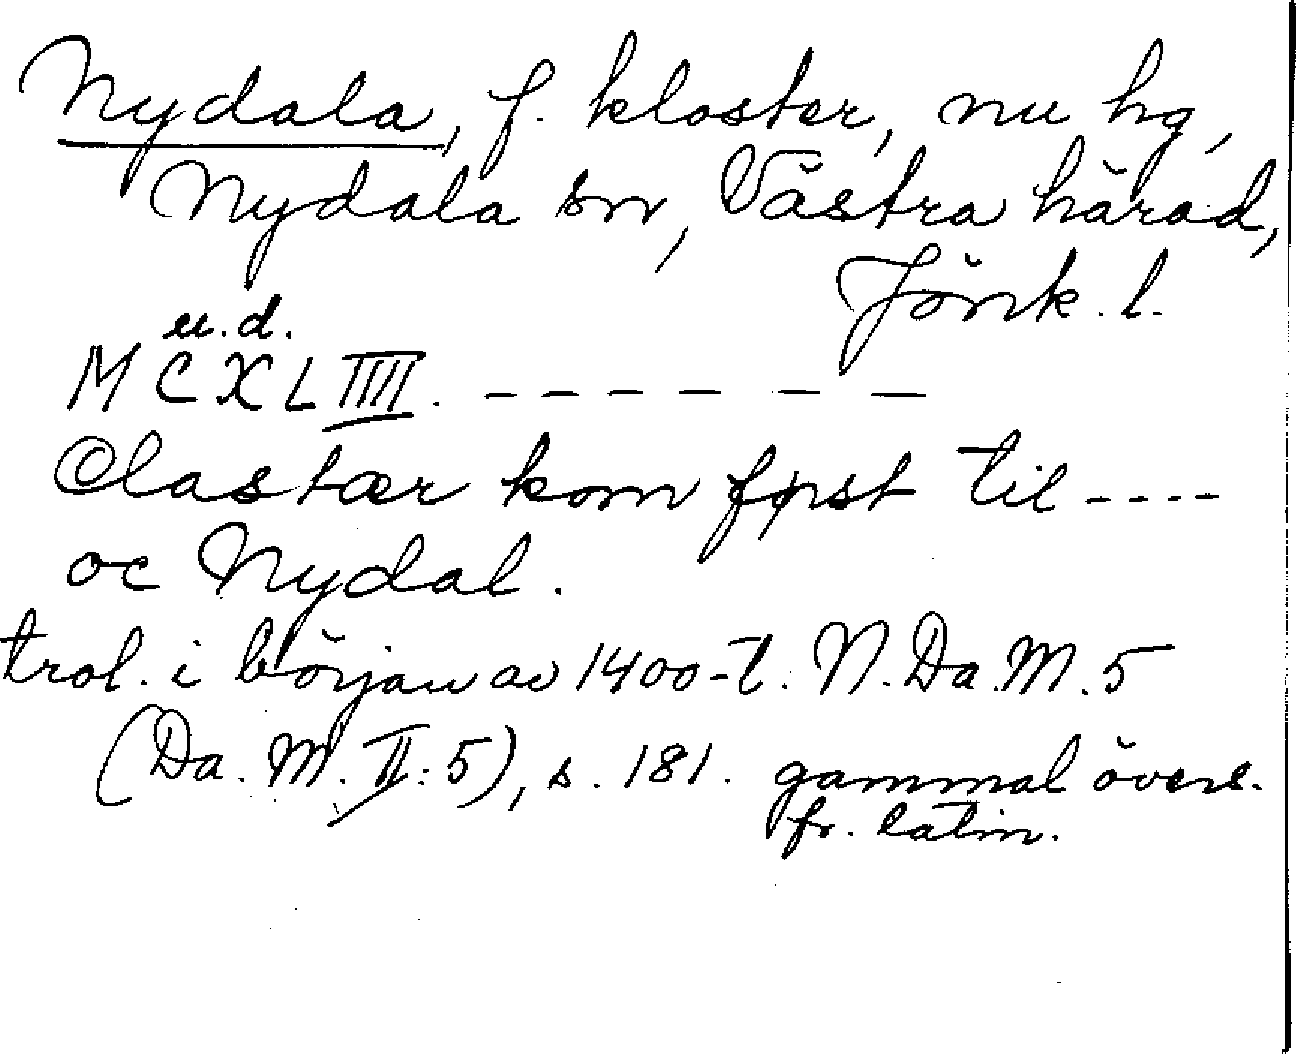 Nydala, f. kloster, nu hg,
Nydala sn, Västra härad,
Jönk. l.
u.d.
MCXLIIII. – – – – – –
Clastær kom føst til ----
oc Nydal.
trol. i början av 1400-t. N. Da. M. 5
(Da. M. II: 5), s. 181. gammal övers.
fr. latin.